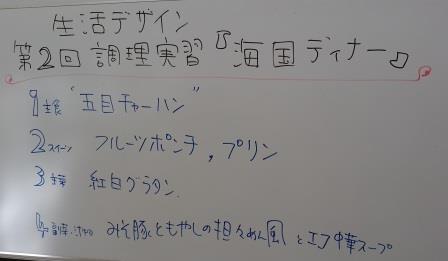 生活デザイン
第2回 調理実習『海国ディナー』
1主食 "五目チャーハン"
2スイーツ フルーツポンチ, プリン
3主菜 紅白グラタン.
4 副菜・汁もの みそ豚ともやしの担々めん風 と 中華スープ